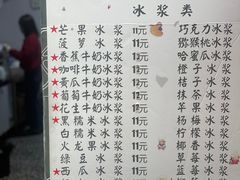 冰浆类
芒果冰浆 11元 巧克力冰
菠萝冰浆 11元 猕猴桃冰
★香蕉牛奶冰浆 11元 哈蜜瓜冰
★咖啡牛奶冰浆 11元 橙子冰
★黄瓜牛奶冰浆 11元 桔子冰
★葡萄牛奶冰浆 11元 抹茶冰
★花生牛奶冰浆 11元 苹果冰
★黑糯米冰浆 11元 杨梅冰
白糯米冰浆 11元 柠檬冰
火龙果冰浆 11元 椰子冰
绿豆冰浆 11元 草莓冰
★西瓜冰浆 11元 蓝莓冰